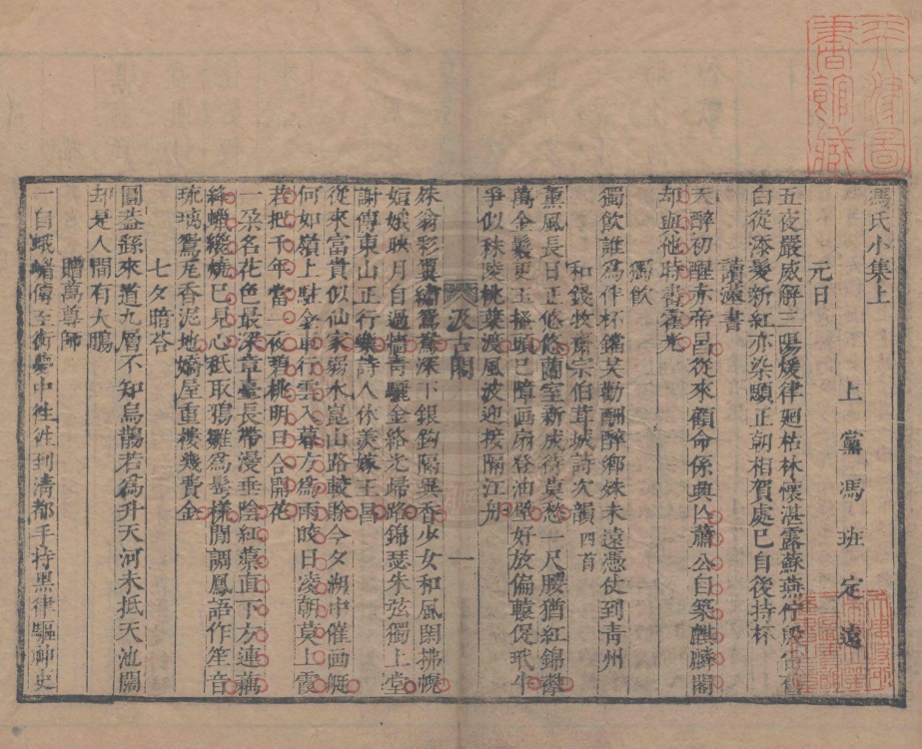 馮氏小集上
上黨馮班定遠
元日
五夜嚴威解三陽煖律廻枯林懷湛露蘇燕佇
白從添髮新紅亦染顋正朝相賀處巳自後持杯
讀漢書
天醉初醒赤帝呂從來顧命係典八蕭公自築麒麟閣
却與他時書霍光
獨飲
獨飲誰爲作杯鐺笑勸酬醉鄉殊未遠憑仗到青州
和錢牧齋宗伯茸城詩次韻四首
薰風長日正悠悠蘭室新成待莫愁一尺腰猶紅錦襻
萬金髻更玉搔頭巳障画扇登油壁好放偏轅促玳牛
爭似秣陵桃葉渡風波迎接隔江舟
汲古閣
一
姝翁彩翠繡鴛鴦深下銀鈎隔異香少女和風閑拂幌
姮娥映月自過牆青驪金絡光歸路錦瑟朱弦獨上堂
謝傅東山正行樂詩人休羡嫁王昌
從來富貴似仙家弱水崑山路較賒今夕湖中催画艇
何如嶺上駐金車行雲入暮方爲雨皎日凌朝莫上霞
若把千年當一夜碧桃明日合開花
一朶名花色最深章臺長帶漫垂陰紅蕖直下方連藕
絳蠟纔燒巳見心秖取鴉雛爲髻樣閒調鳳語作笙音
琉璃鴛尾香泥地嬌屋重樓幾費金
七夕暗荅
圓葢縣來道九層不知烏鵲若爲升天河未抵天池闊
却是人間有大鵬
贈萬尊師
一自峨嵋傳至衡夢中徃徃到淸都手持黑律驅神吏
天津圖書館藏